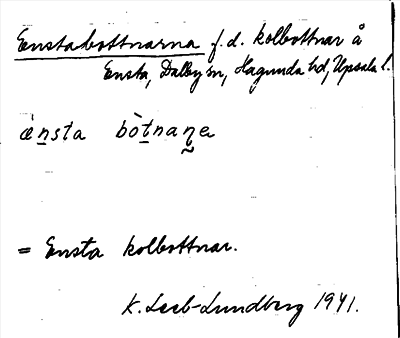 Enstabottnarna f.d. kolbottnar å
Ensta, Dalby sn, Hagunda hd, Upsala l.
ǽn̲sta bòt̲naṇa
= Ensta kolbottnar.
K. Leeb-Lundberg 1941.